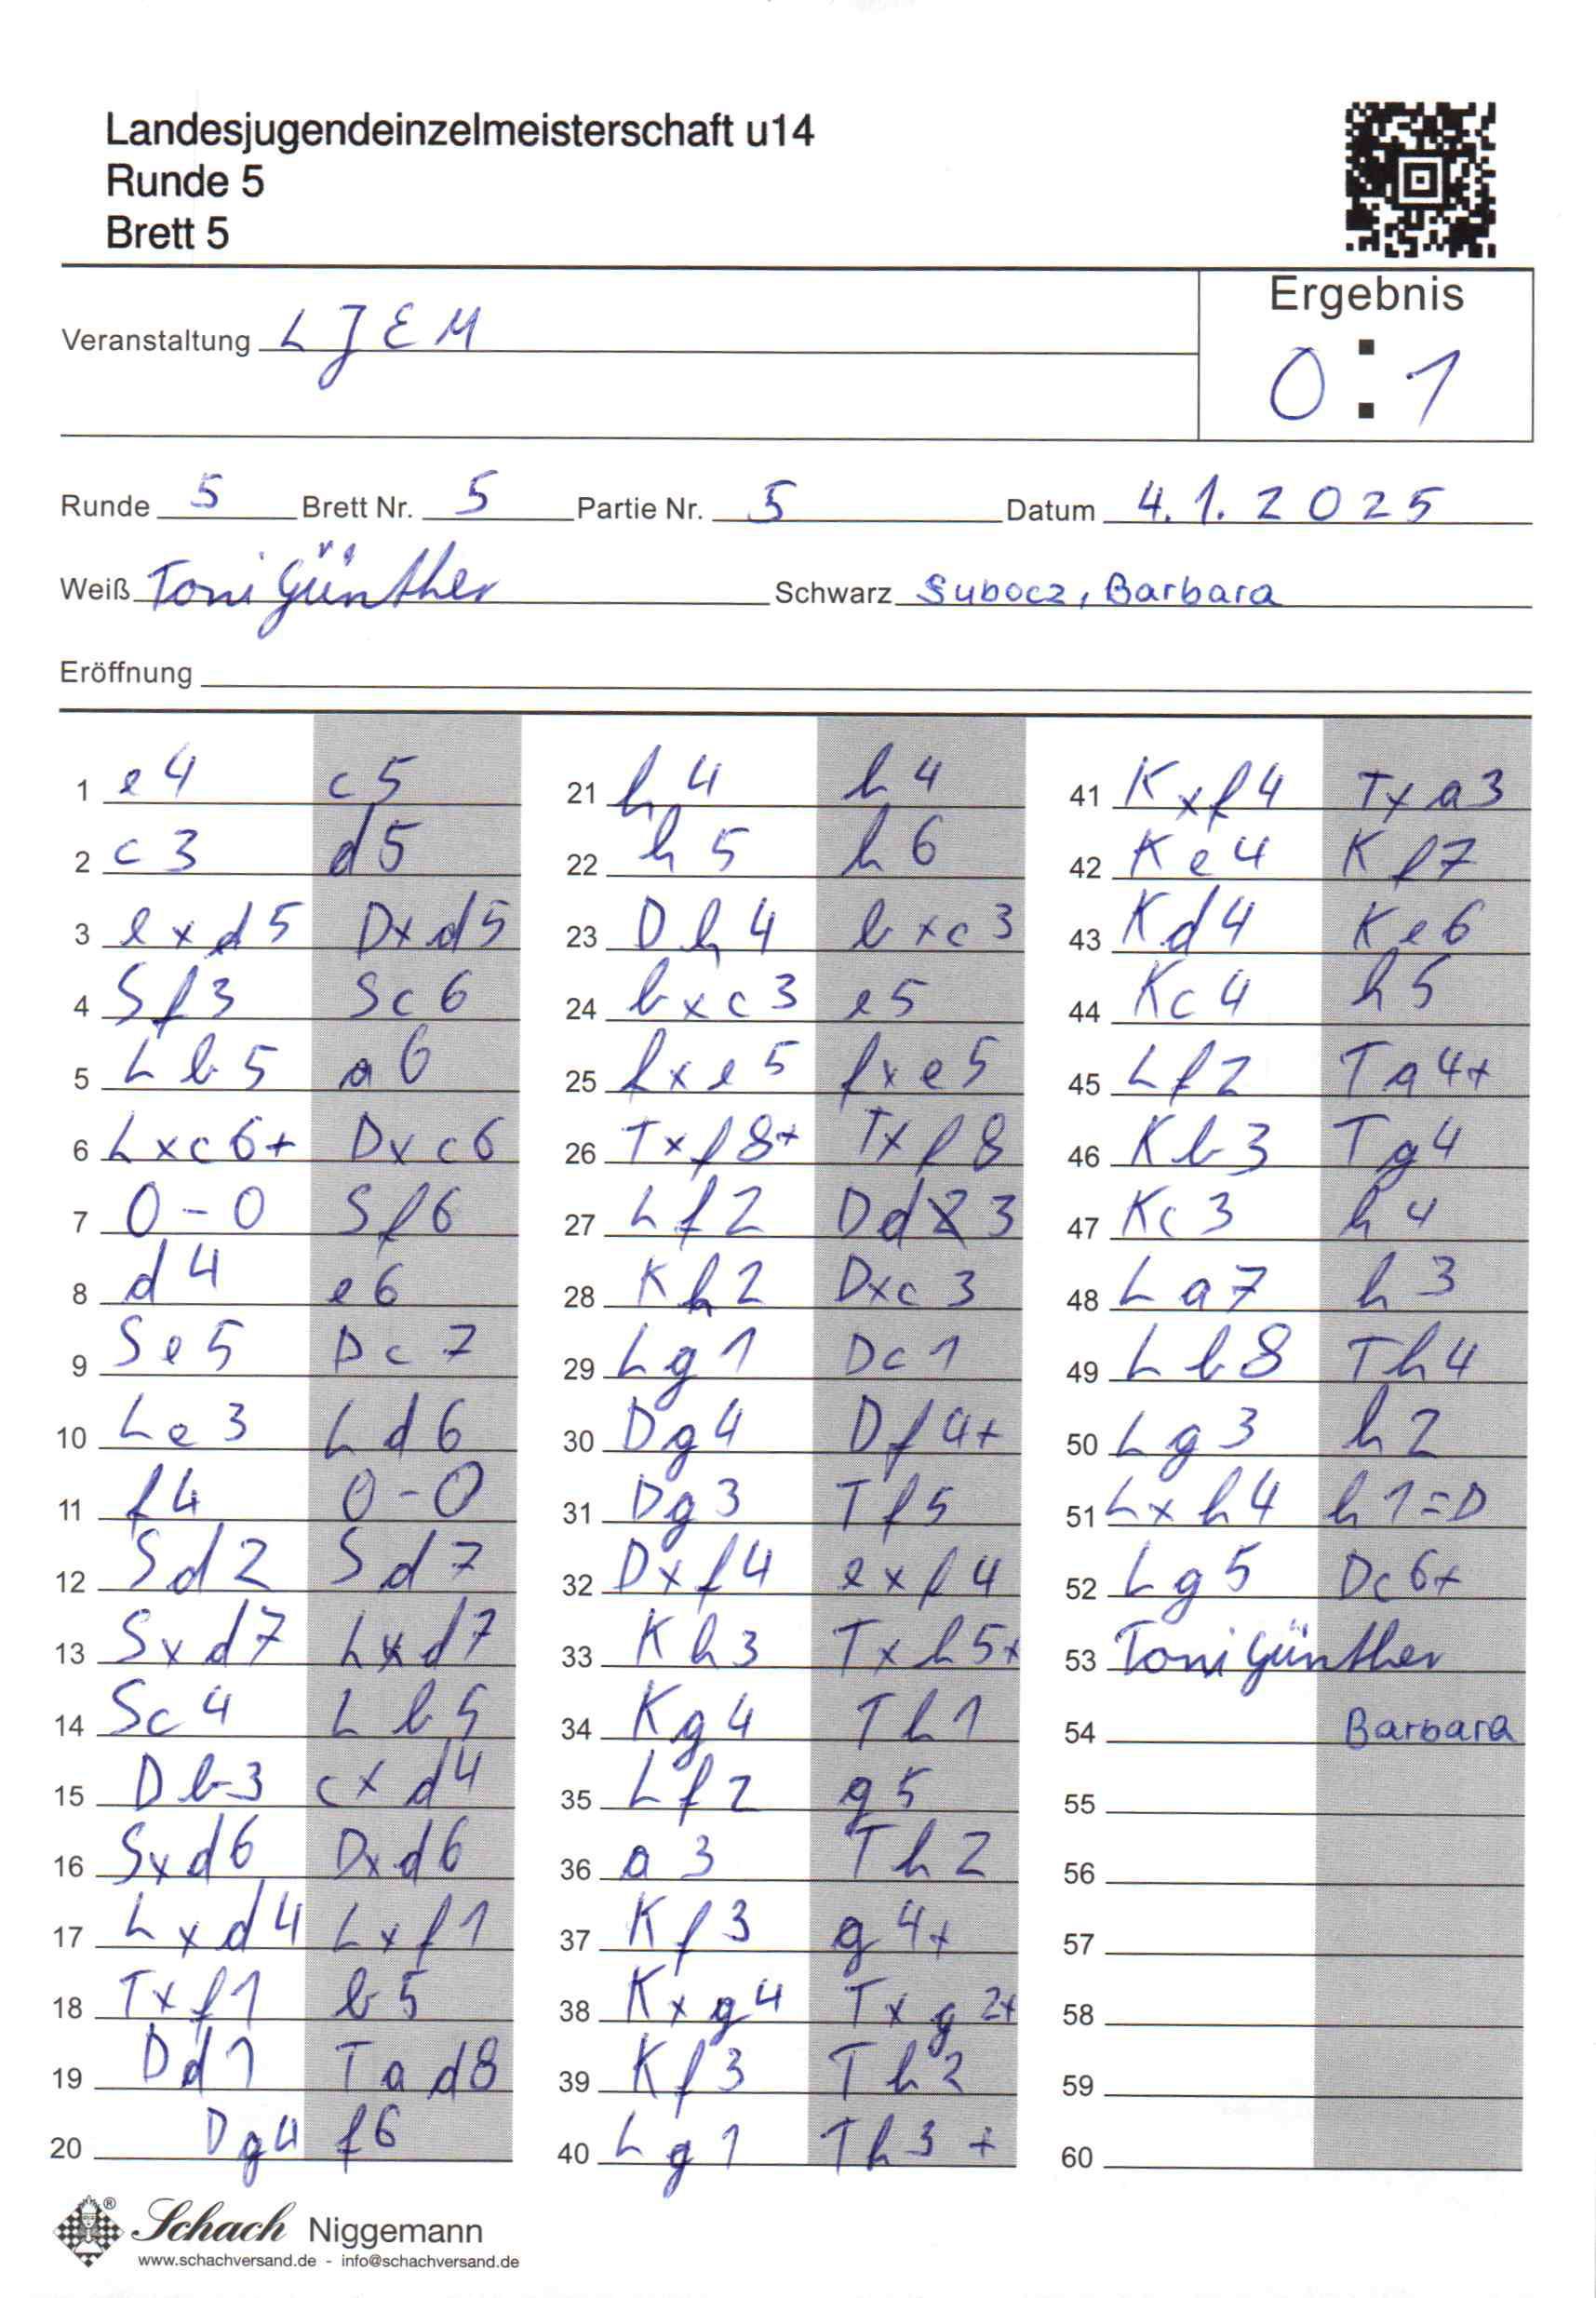 Landesjugendeinzelmeisterschaft u14
Runde 5
Brett 5
Ergebnis
0 : 1
Veranstaltung LJEM
Runde 5 Brett Nr. 5 Partie Nr. 5 Datum 4.1.2025
Weiß Toni Günther Schwarz Subocz, Barbara
Eröffnung
1 e4 c5
2 c3 d5
3 exd5 Dxd5
4 Sf3 Sc6
5 Lb5 a6
6 Lxc6+ Dxc6
7 0-0 Sf6
8 d4 e6
9 Se5 Dc7
10 Le3 Ld6
11 f4 0-0
12 Sd2 Sd7
13 Sxd7 Lxd7
14 Sc4 Lb5
15 Db3 cxd4
16 Sxd6 Dxd6
17 Lxd4 Lxf1
18 Txf1 b5
19 Dd1 Tad8
20 Dg4 f6
21 h4 b4
22 h5 h6
23 Dh4 bxc3
24 bxc3 e5
25 fxe5 fxe5
26 Txf8+ Txf8
27 Lf2 Dd3
28 Kh2 Dxc3
29 Lg1 Dc1
30 Dg4 Df4+
31 Dg3 Tf5
32 Dxf4 exf4
33 Kh3 Txh5+
34 Kg4 Th1
35 Lf2 g5
36 a3 Th2
37 Kf3 g4+
38 Kxg4 Txg2+
39 Kf3 Th2
40 Lg1 Th3+
41 Kxf4 Txa3
42 Ke4 Kf7
43 Kd4 Ke6
44 Kc4 h5
45 Lf2 Ta4+
46 Kb3 Tg4
47 Kc3 h4
48 La7 h3
49 Lb8 Th4
50 Lg3 h2
51 Lxh4 h1=D
52 Lg5 Dc6+
53 Toni Günther
54 Barbara
55
56
57
58
59
60
Schach Niggemann
www.schachversand.de - info@schachversand.de